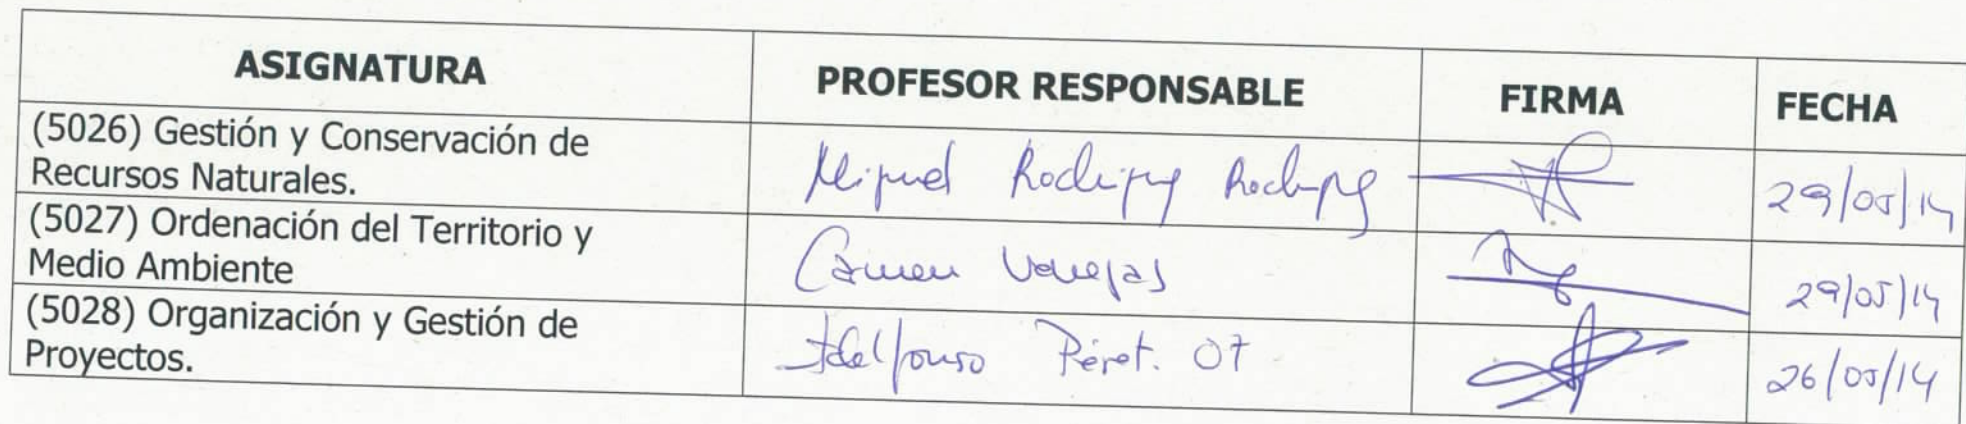 ASIGNATURA PROFESOR RESPONSABLE FIRMA FECHA
(5026) Gestión y Conservación de
Recursos Naturales.
Miguel Rodríguez Rodríguez 29/05/14
(5027) Ordenación del Territorio y
Medio Ambiente
Carmen Vanegas 29/05/14
(5028) Organización y Gestión de
Proyectos.
Idelfonso 26/05/14